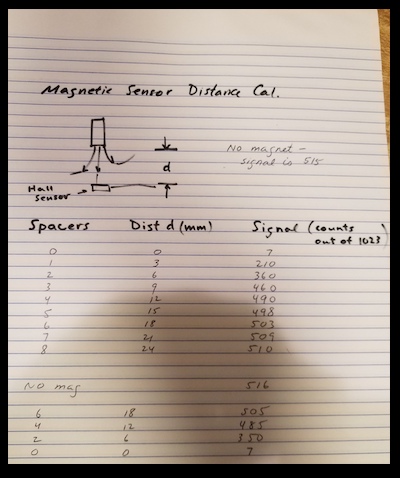 Magnetic Sensor Distance Cal.
No magnet -
signal is 515
d
Hall
sensor
Spacers Dist d (mm) Signal (counts
out of 1023)
0 0 7
1 3 210
2 6 360
3 9 460
4 12 490
5 15 498
6 18 503
7 21 509
8 24 510
No mag 516
6 18 505
4 12 485
2 6 350
0 0 7